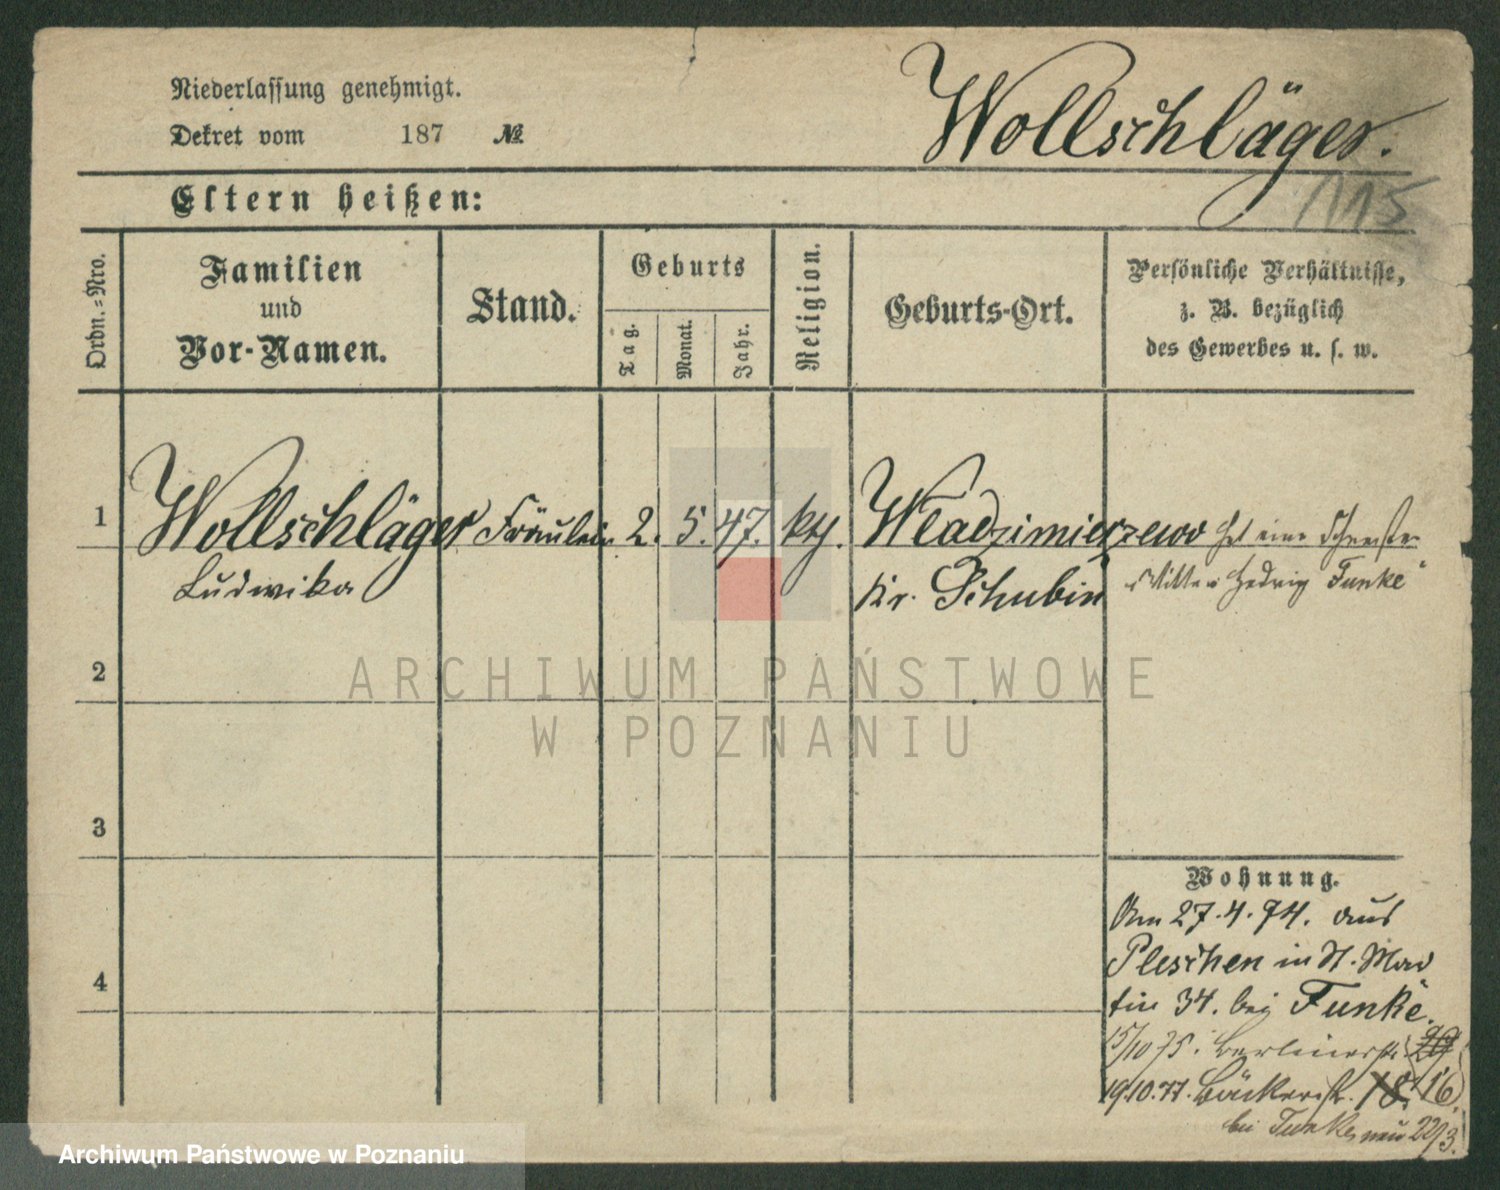 Niederlassung genehmigt.
Dekret vom 187 №
Wollschläger.
115
Eltern heißen:
Ordn.=Nro.
Familien
und
Vor-Namen.
Stand.
Geburts
Tag.
Monat.
Jahr.
Religion.
Geburts-Ort.
Persönliche Verhältnisse,
z. B. bezüglich
des Gewerbes u. s. w.
1 Wollschläger Fräulein 2. 5. 47. kth. Wladzimierzewo hat eine Schwester
Ludwika Kr. Schubin Hedrig Funke
2
3
4
Wohnung.
Am 27.4.74. aus
Pleschen in St. Mar
tin 34. bei Funke.
15/10 75. Berlinerstr.
19.10.77. Bäckerstr. 18. 16
bei Funke
ARCHIWUM PAŃSTWOWE
W POZNANIU
Archiwum Państwowe w Poznaniu